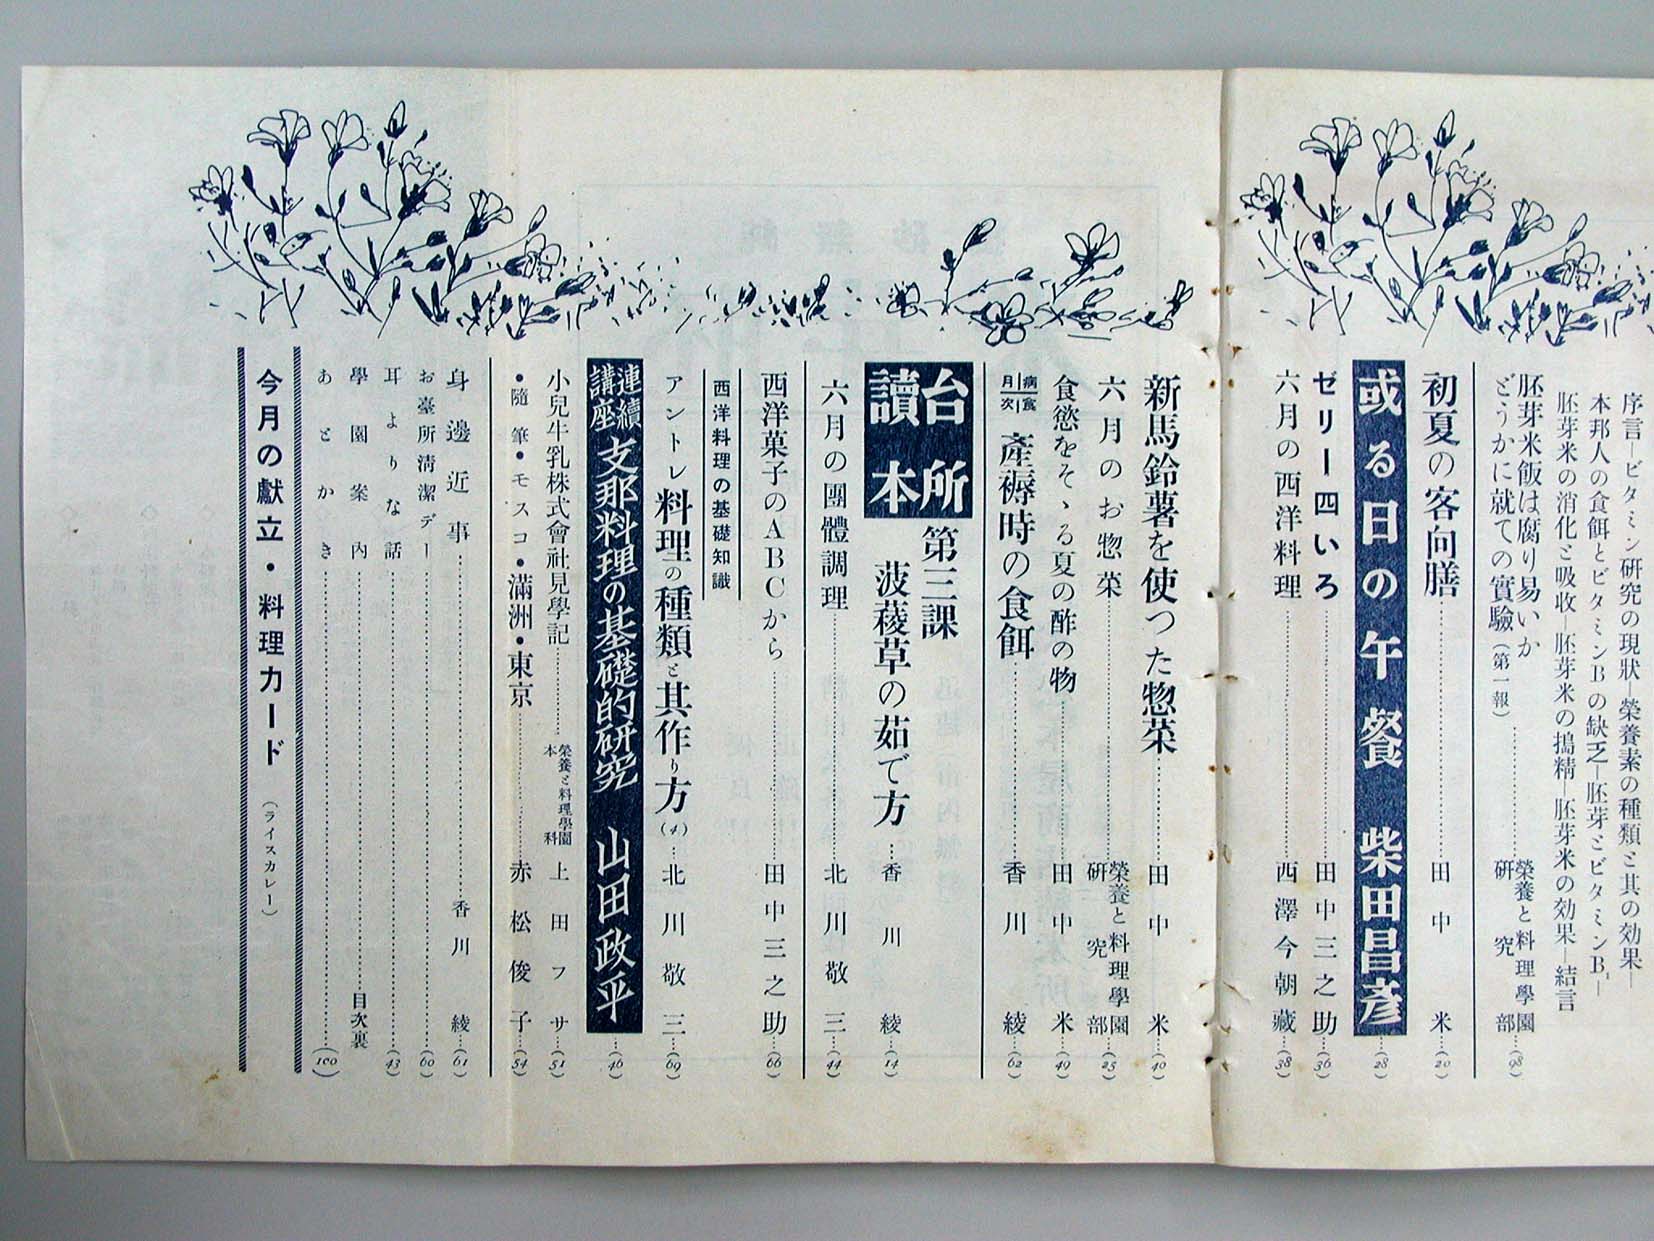 序言―ビタミン研究の現狀―榮養素の種類と其の効果―
本邦人の食餌とビタミンBの缺乏―胚芽とビタミンB₁―
胚芽米の消化と吸收―胚芽米の搗精―胚芽米の効果―結言
胚芽米飯は腐り易いか
どうかに就ての實驗(第一報)……榮養と料理學園研究部…(98)
初夏の客向膳……田中米…(20)
或る日の午餐 柴田昌彥…(28)
ゼリー四いろ……田中三之助…(36)
六月の西洋料理……西澤今朝藏…(38)
新馬鈴薯を使つた惣菜……田中米…(40)
六月のお惣菜……榮養と料理學園研究部…(25)
食慾をそゝる夏の酢の物……田中米…(49)
病人食月次 產褥時の食餌……香川綾…(62)
台所讀本 第三課
菠薐草の茹で方…香川綾…(14)
六月の團體調理……北川敬三…(44)
西洋菓子のABCから……田中三之助…(66)
西洋料理の基礎知識
アントレ料理の種類と其作り方(4)…北川敬三…(69)
連續講座 支那料理の基礎的研究 山田政平…(46)
小兒牛乳株式會社見學記……榮養と料理學園本科 上田フサ…(51)
•隨筆•モスコ•滿洲•東京……赤松俊子…(54)
身邊近事……香川綾…(61)
お臺所淸潔デー……(60)
耳よりな話……(43)
學園案內……目次裏
あとがき……(100)
今月の獻立・料理カード (ライスカレー)